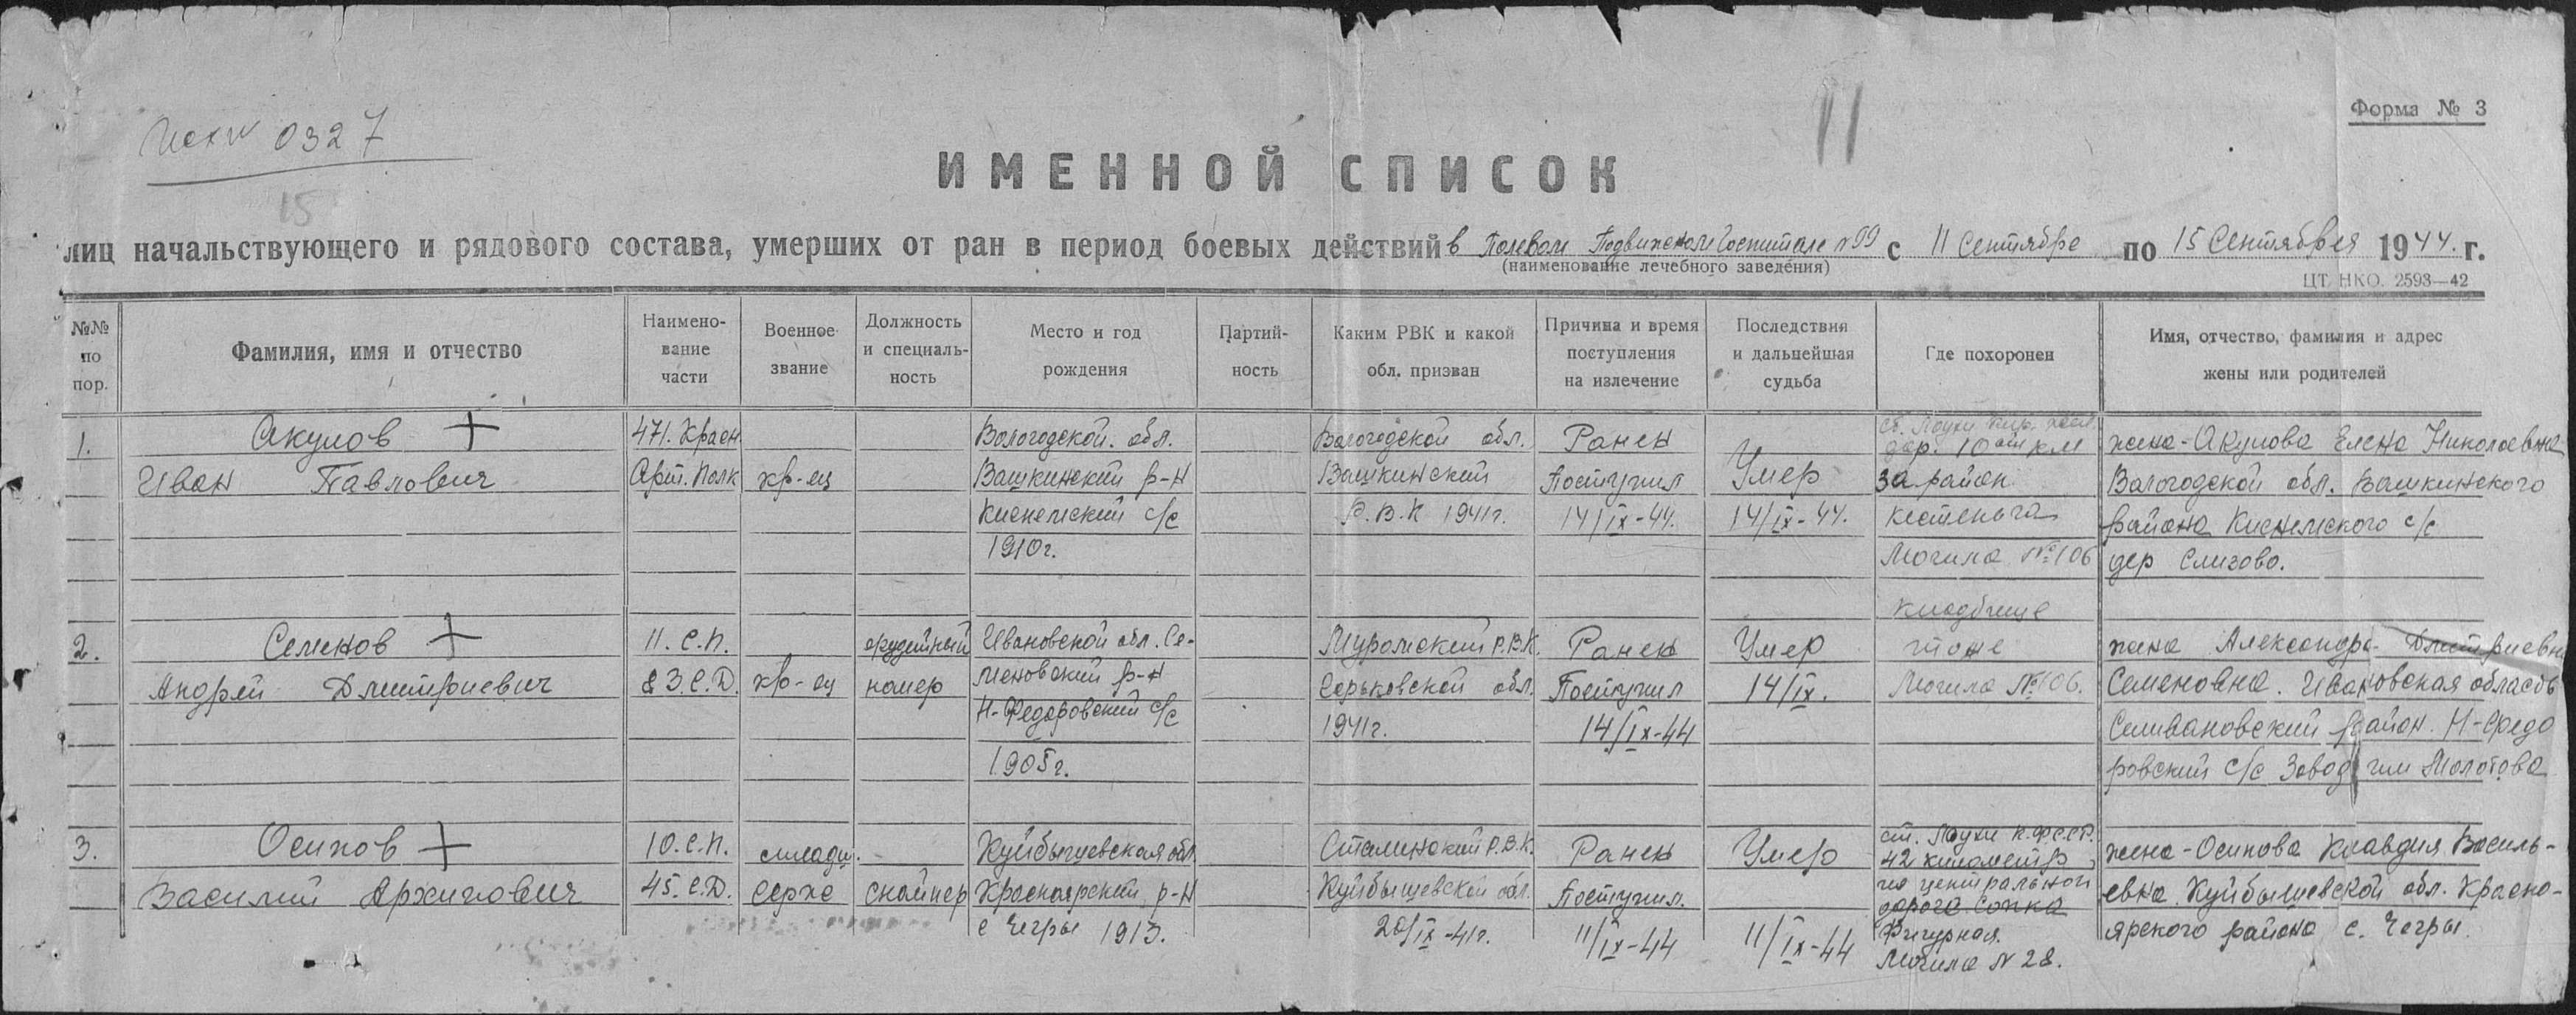 Исх № 0327
11
Форма № 3
15
ИМЕННОЙ СПИСОК
лиц начальствующего и рядового состава, умерших от ран в период боевых действий в Полевом Подвижном Госпитале №99 с 11 Сентября по 15 Сентября 1944 г.
(наименование лечебного заведения)
ЦТ. НКО. 2593—42
№№ по пор.
Фамилия, имя и отчество
Наимено-
вание
части
Военное
звание
Должность
и специаль-
ность
Место и год
рождения
Партий-
ность
Каким РВК и какой
обл. призван
Причина и время
поступления
на излечение
Последствия
и дальнейшая
судьба
Где похоронен
Имя, отчество, фамилия и адрес
жены или родителей
1.
Акулов +
Иван Павлович
471. Краен
Арт. Полк
кр-ец
Вологодской. обл.
Вашкинский р-н
Киснемский с/с
1910г.
Вологодской обл.
Вашкинский
Р.В.К 1941г.
Ранен
Поступил
14/IX-44.
Умер
14/IX-44.
ст. Лоухи
дор. 10ый км
за район
Кестеньга
Могила №106
кладбище
жена-Акулова Елена Николаевна
Вологодской обл. Вашкинского
района Киснемского с/с
дер Слизово.
2.
Семенов +
Андрей Дмитриевич
11. С.П.
83. С.Д.
кр-ец
орудейный
номер
Ивановской обл. Се-
меновский р-н
Н-Федоровский с/с
1905г.
Муромский Р.В.К.
Горьковской обл.
1941г.
Ранен
Поступил
14/IX-44
Умер
14/IX.
тоже
Могила №106.
жена Александра Дмитриевна
Семеновна. Ивановская область
Селивановский район. Н-Федо
ровский с/с Завод им Молотова
3.
Осипов +
Василий Архипович
10. С.П.
45. С.Д.
младш.
серже
снайпер
Куйбышевская обл
Красноярский р-н
с Чегры 1913.
Сталинский Р.В.К.
Куйбышевской обл.
20/IX-41г.
Ранен
Поступил.
11/IX-44
Умер
11/IX-44
ст. Лоухи К.Ф.С.С.Р.
42 километр
по центральной
дороге. Сопка
Фигурная.
Могила №28.
жена-Осипова Клавдия Василь-
евна. Куйбышевской обл. Красно-
ярского района с. Чегры.